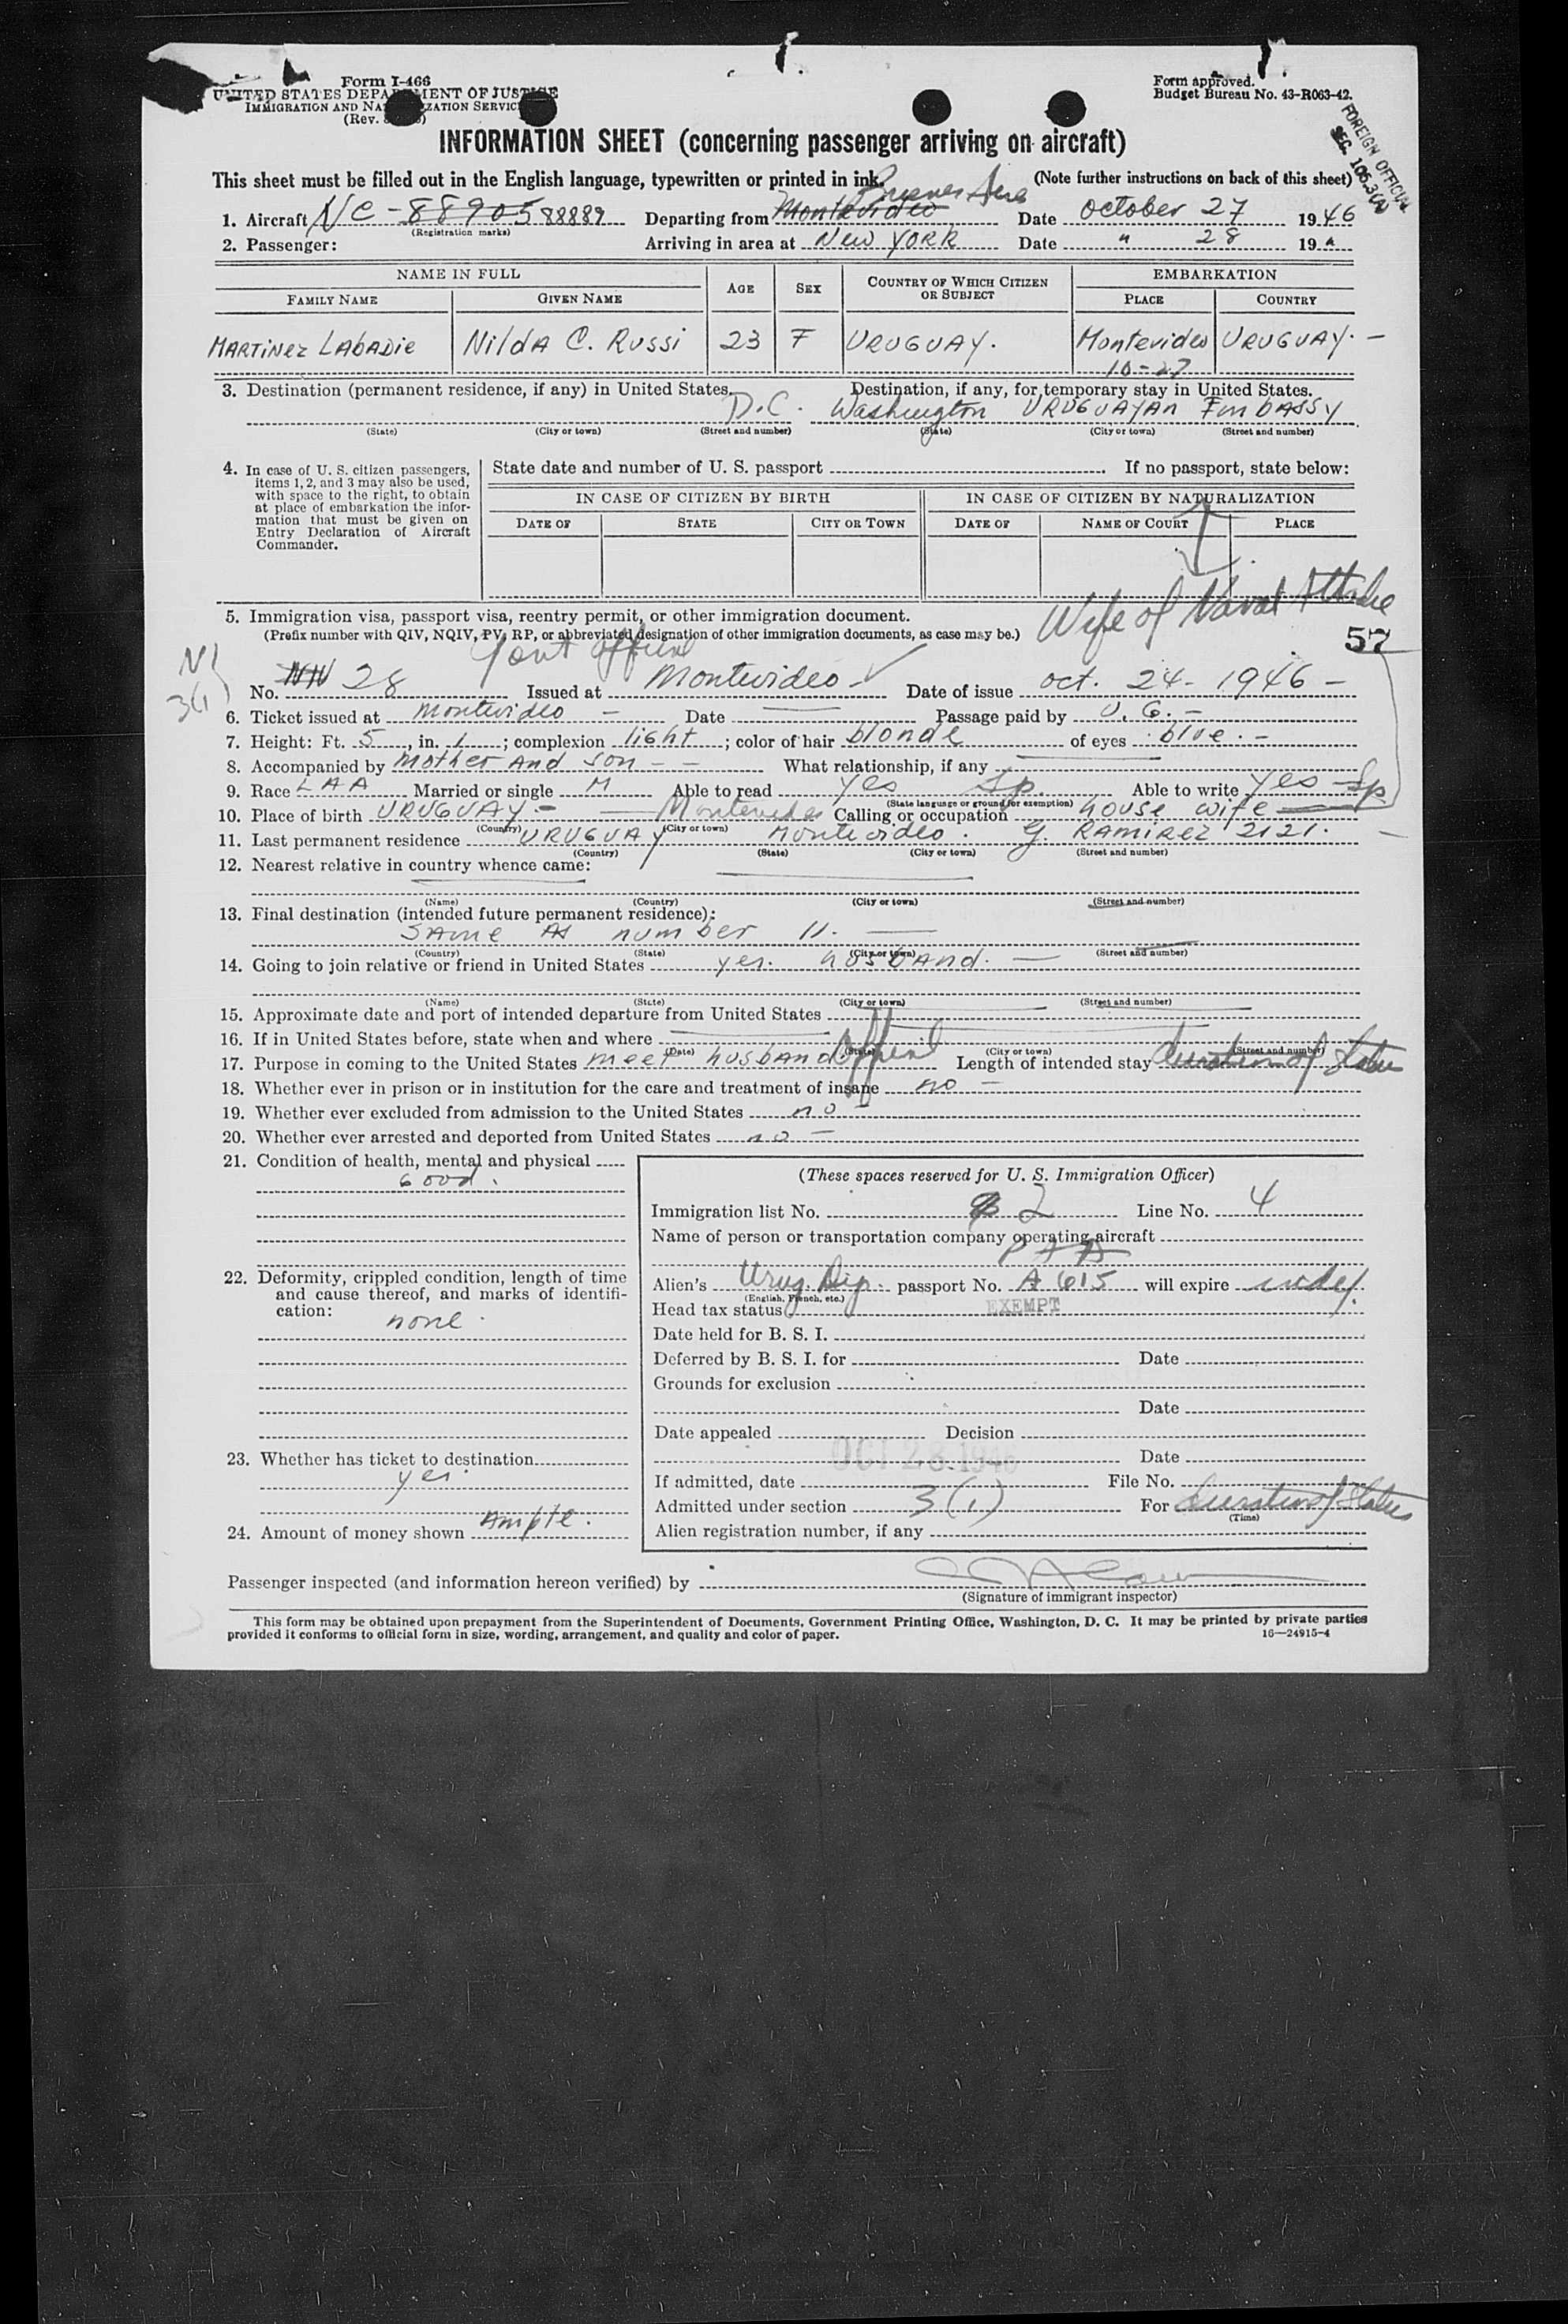 Form I-466
UNITED STATES DEPARTMENT OF JUSTICE
IMMIGRATION AND NATURALIZATION SERVICE
(Rev.
Form approved.
Budget Bureau No. 43-R063-42.
FOREIGN OFFICIAL
SEC.
INFORMATION SHEET (concerning passenger arriving on aircraft)
This sheet must be filled out in the English language, typewritten or printed in ink. (Note further instructions on back of this sheet)
Buenos Aires
1. Aircraft NC-88905 88889 Departing from Montevideo Date October 27 1946
(Registration marks)
2. Passenger: Arriving in area at New York Date " 28 19 "
NAME IN FULL AGE SEX COUNTRY OF WHICH CITIZEN OR SUBJECT EMBARKATION
FAMILY NAME GIVEN NAME PLACE COUNTRY
MARTINEZ LABADIE Nilda C. Russi 23 F URUGUAY. Montevideo URUGUAY. -
10-27
3. Destination (permanent residence, if any) in United States. Destination, if any, for temporary stay in United States.
D.C. Washington URUGUAYAN EmbASSY
(State) (City or town) (Street and number) (State) (City or town) (Street and number)
4. In case of U. S. citizen passengers, items 1, 2, and 3 may also be used, with space to the right, to obtain at place of embarkation the information that must be given on Entry Declaration of Aircraft Commander.
State date and number of U. S. passport If no passport, state below:
IN CASE OF CITIZEN BY BIRTH IN CASE OF CITIZEN BY NATURALIZATION
DATE OF STATE CITY OR TOWN DATE OF NAME OF COURT PLACE
Wife of Naval Attache
5. Immigration visa, passport visa, reentry permit, or other immigration document.
(Prefix number with QIV, NQIV, PV, RP, or abbreviated designation of other immigration documents, as case may be.)
57
Govt official
No. 28 Issued at Montevideo - Date of issue oct. 24 - 1946 -
6. Ticket issued at montevideo - Date Passage paid by U. G. -
7. Height: Ft. 5, in. 1; complexion light; color of hair blonde of eyes blue. -
8. Accompanied by Mother And son - - What relationship, if any
9. Race LAA Married or single M Able to read yes Sp. Able to write yes Sp
(State language or ground for exemption)
10. Place of birth URUGUAY - Montevideo Calling or occupation house wife
(Country) (City or town)
11. Last permanent residence URUGUAY Montevideo. G. RAMIREZ 2121.
(Country) (State) (City or town) (Street and number)
12. Nearest relative in country whence came:
(Name) (Country) (City or town) (Street and number)
13. Final destination (intended future permanent residence):
SAme As number 11.
(Country) (State) (City or town) (Street and number)
14. Going to join relative or friend in United States yes. husband. -
(Name) (State) (City or town) (Street and number)
15. Approximate date and port of intended departure from United States
16. If in United States before, state when and where
(Date) (State) (City or town) (Street and number)
17. Purpose in coming to the United States meet husband. Official Length of intended stay duration of status
18. Whether ever in prison or in institution for the care and treatment of insane no -
19. Whether ever excluded from admission to the United States no -
20. Whether ever arrested and deported from United States no -
21. Condition of health, mental and physical
Good.
22. Deformity, crippled condition, length of time and cause thereof, and marks of identification:
none.
23. Whether has ticket to destination
yes.
24. Amount of money shown Ample.
(These spaces reserved for U. S. Immigration Officer)
Immigration list No. 2 Line No. 4
Name of person or transportation company operating aircraft
PAA
Alien's Urug. Dip. passport No. A 615 will expire indef.
(English, French, etc.)
Head tax status EXEMPT
Date held for B. S. I.
Deferred by B. S. I. for Date
Grounds for exclusion
Date
Date appealed Decision
OCT 28 1946 Date
If admitted, date File No.
Admitted under section 3(1) For duration of status
(Time)
Alien registration number, if any
Passenger inspected (and information hereon verified) by
(Signature of immigrant inspector)
This form may be obtained upon prepayment from the Superintendent of Documents, Government Printing Office, Washington, D. C. It may be printed by private parties
provided it conforms to official form in size, wording, arrangement, and quality and color of paper. 16—24915-4